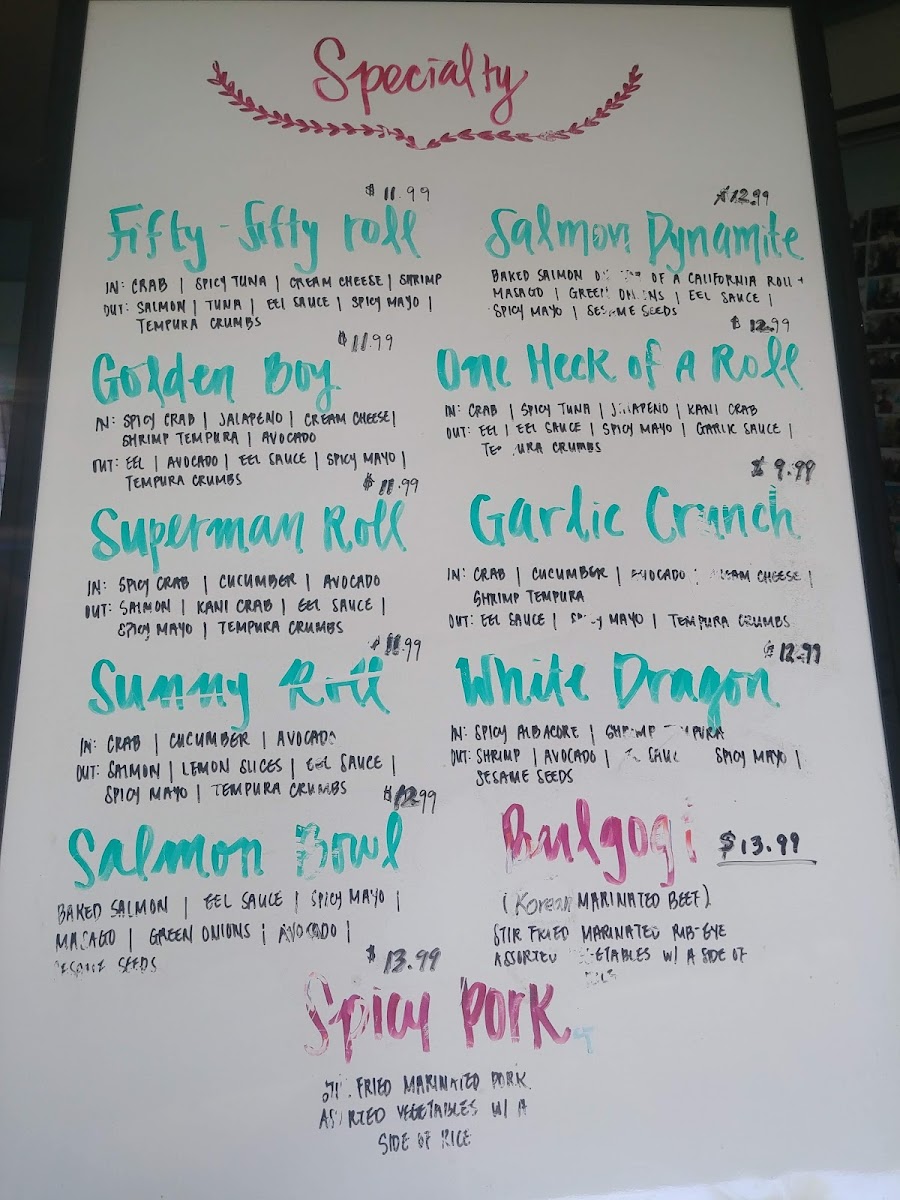 Specialty
$ 11.99
Fifty-fifty roll
IN: CRAB | SPICY TUNA | CREAM CHEESE | SHRIMP
OUT: SALMON | TUNA | EEL SAUCE | SPICY MAYO |
TEMPURA CRUMBS
$ 11.99
Golden Boy
IN: SPICY CRAB | JALAPENO | CREAM CHEESE |
SHRIMP TEMPURA | AVOCADO
OUT: EEL | AVOCADO | EEL SAUCE | SPICY MAYO |
TEMPURA CRUMBS
$ 11.99
Superman Roll
IN: SPICY CRAB | CUCUMBER | AVOCADO
OUT: SALMON | KANI CRAB | EEL SAUCE |
SPICY MAYO | TEMPURA CRUMBS
$ 11.99
Sunny Roll
IN: CRAB | CUCUMBER | AVOCADO
OUT: SALMON | LEMON SLICES | EEL SAUCE |
SPICY MAYO | TEMPURA CRUMBS
$12.99
Salmon Bowl
BAKED SALMON | EEL SAUCE | SPICY MAYO |
MASAGO | GREEN ONIONS | AVOCADO |
SESAME SEEDS
$12.99
Salmon Dynamite
BAKED SALMON OF A CALIFORNIA ROLL +
MASAGO | GREEN ONIONS | EEL SAUCE |
SPICY MAYO | SESAME SEEDS
$ 12.99
One Heck of A Roll
IN: CRAB | SPICY TUNA | JALAPENO | KANI CRAB
OUT: EEL | EEL SAUCE | SPICY MAYO | GARLIC SAUCE |
TEMPURA CRUMBS
$ 9.99
Garlic Crunch
IN: CRAB | CUCUMBER | AVOCADO | CREAM CHEESE |
SHRIMP TEMPURA
OUT: EEL SAUCE | SPICY MAYO | TEMPURA CRUMBS
$ 12.99
White Dragon
IN: SPICY ALBACORE | SHRIMP TEMPURA
OUT: SHRIMP | AVOCADO | SAUCE SPICY MAYO |
SESAME SEEDS
Bulgogi $13.99
(Korean MARINATED BEEF)
STIR FRIED MARINATED RIB-EYE
ASSORTED VEGETABLES W/ A SIDE OF
$ 13.99
Spicy Pork
FRIED MARINATED PORK
ASSORTED VEGETABLES W/ A
SIDE OF RICE